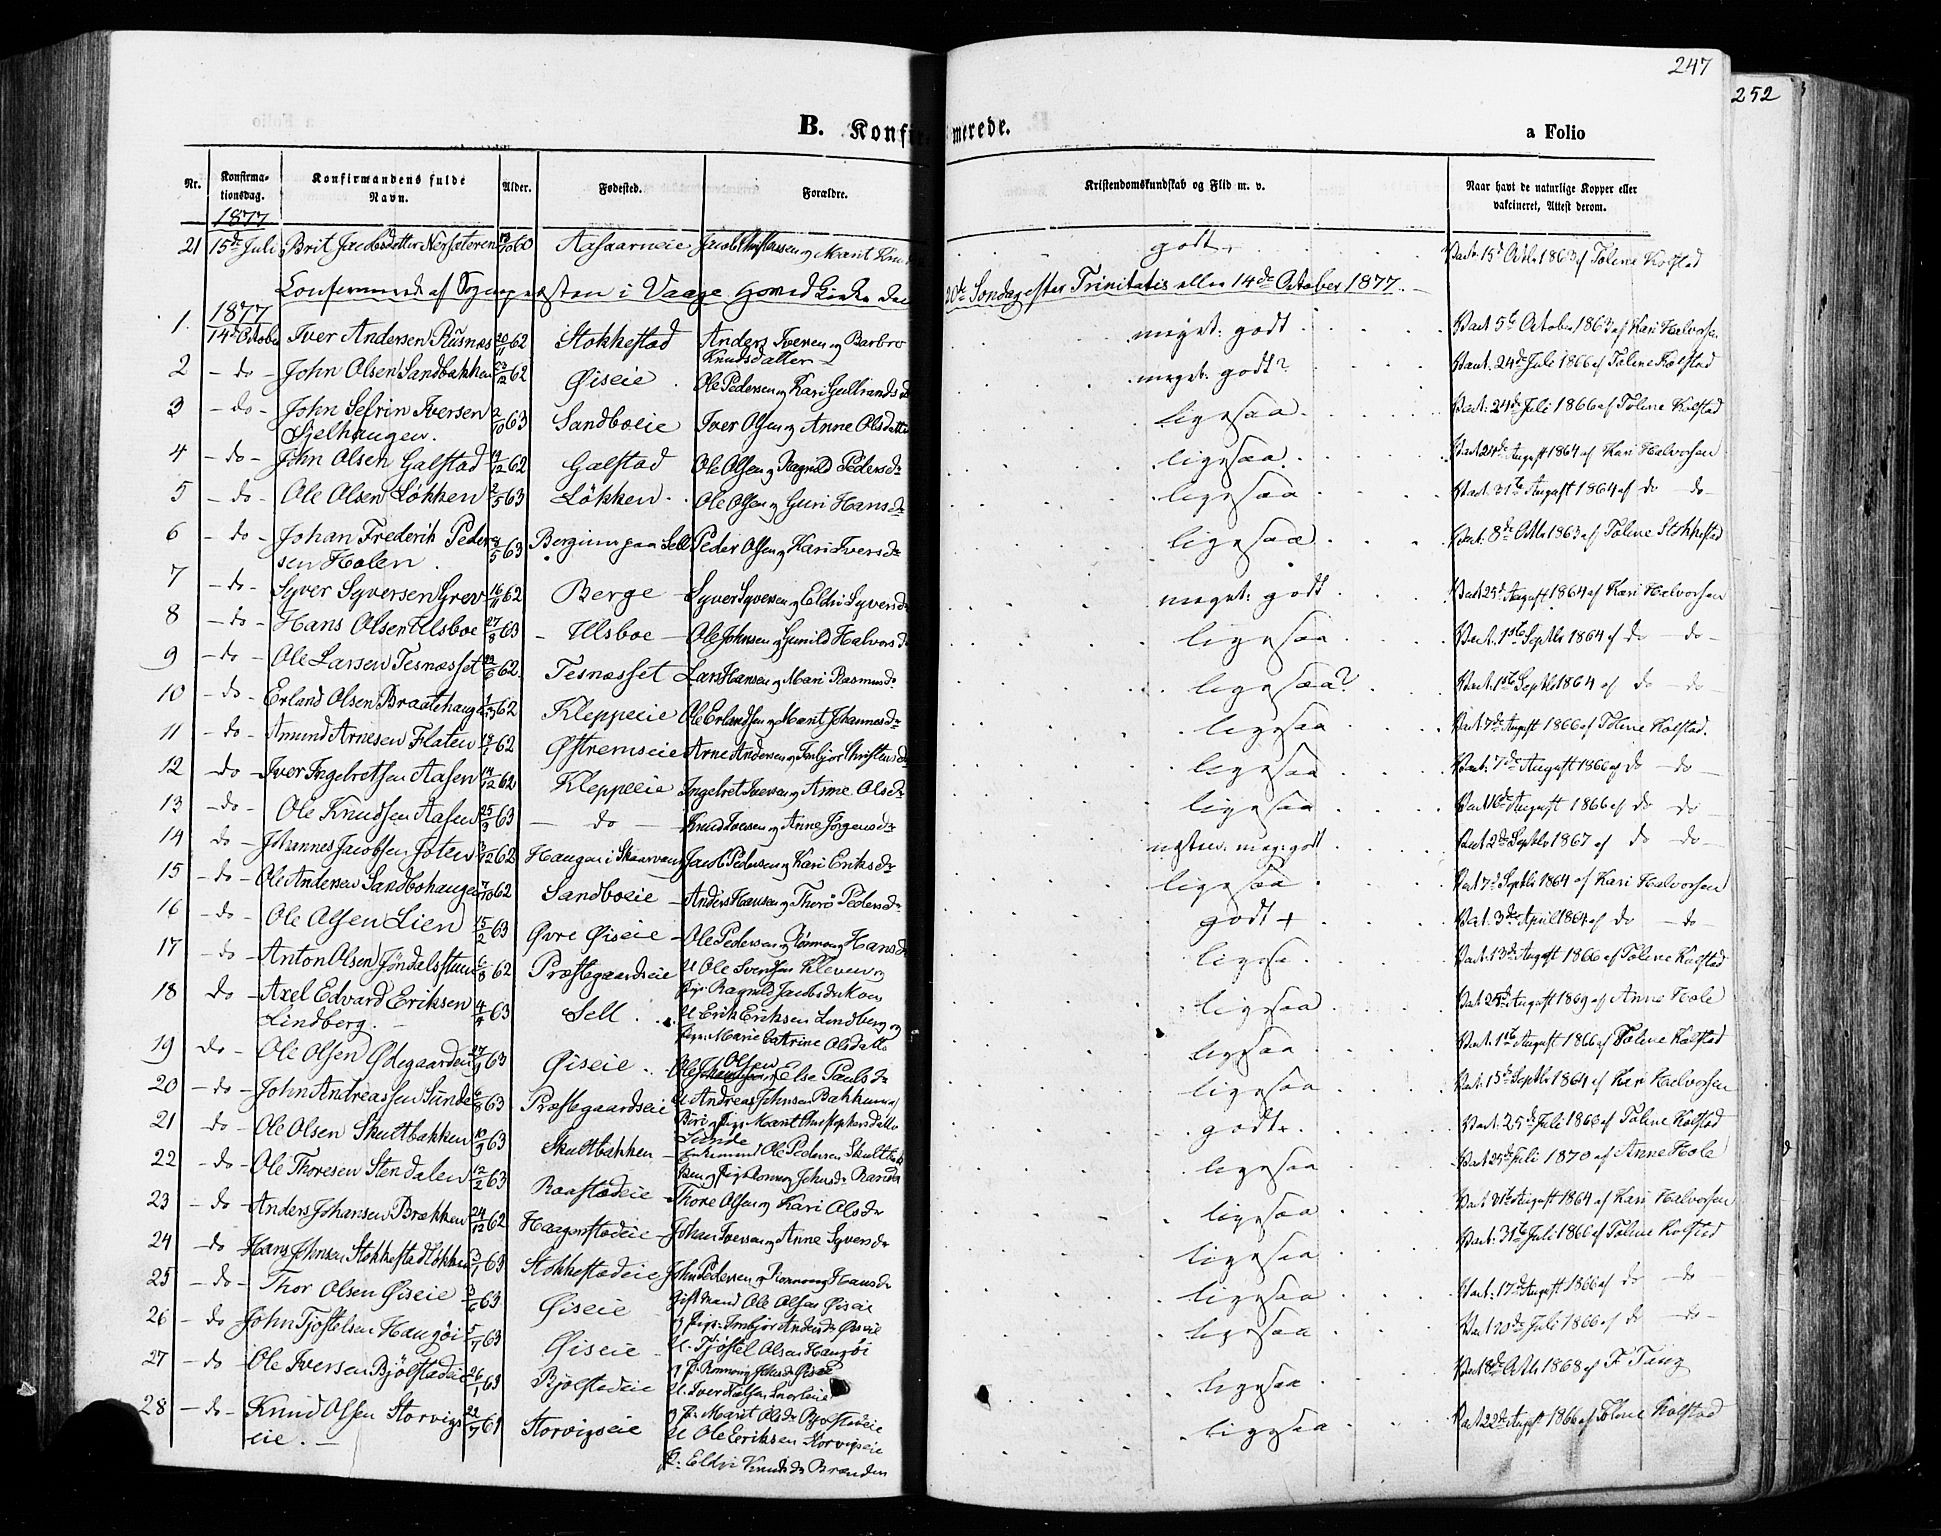 247
252
B. Konfirmerede.
a Folio
Nr. Konfirmationsdag. Konfirmandens fulde Navn. Alder. Fødested. Forældre. Kristendomskundskab og Flid m. v. Naar havt de naturlige Kopper eller vakcineret, Attest derom.
1877
21 15de Juli Brit Jacobsdatter 60 Aasaarneie og Marit godt + Vact. 15 1863 af Tolene Kolstad
Confirmerede af Sognepræsten i Vaage Hoved Kirke den 20de Søndag efter Trinitatis eller 14de October 1877.
1877
1. 14de October Iver Andersen Rusnæs 20/11 62 Stokkestad Anders Iversen og Barbro Knudsdatter meget godt Vact 5te October 1863 af Kari Halvorsen
2 - do - John Olsen Sandbakken 62 Øiseie Ole Pedersen og Kari Gulbrandsd meget godt? Vact. 24de Juli 1866 af Tolene Kolstad
3 - do - John Sefrin Iversen Sjelhaugen. 2/10 63 Sandboeie Iver Olsen og Anne Olsdatter ligesaa Vact. 24de Juli 1866 af Tolene Kolstad
4 - do - John Olsen Galstad 62 Galstad Ole Olsen og Ragnild Pedersdr ligesaa Vact 24de August 1864 af Kari Halvorsen
5 - do - Ole Olsen Løkken 2/5 63 Løkken Ole Olsen og Guri Hansdr ligesaa Vact. 31te August 1864 af do do
6 - do - Johan Frederik Pedersen Holen 63 Bergum paa Sell Peder Olsen og Kari Iversdr ligesaa Vact. 8de Octbr 1863 af Tolene Stokkestad
7 - do - Syver Syversen Grev 16/11 62 Berge Syver Syversen og Eldri Syversdr meget godt Vact 25de August 1864 af Kari Halvorsen
8 - do - Hans Olsen Ulsboe 27/8 63 - Ulsboe - Ole Johnsen og Gunild Halvorsd ligesaa Vact. 1ste Septbr 1864 af do do
9 - do - Ole Larsen Tesnæsset 62 Tesnæsset Lars Hansen og Mari Rasmusdr ligesaa? Vact. 1ste Septbr 1864 af do do
10 - do - Erland Olsen Braatehaugen 62 Kleppeeie Ole Erlandsen og Marit Johannesdr ligesaa Vact 7de August 1866 af Tolene Kolstad.
11 - do - Amund Arnesen Flaten 62 Østremseie Arne Andersen og Imbjør Christensd ligesaa Vact. 7de August 1866 af do do
12 - do - Iver Ingebretsen Aasen 14/12 62 Kleppeeie Ingebret Iversen og Anne Olsdr ligesaa Vact 16de August 1866 af do do
13 - do - Ole Knudsen Aasen 25/3 63 - do - Knud Iversen og Anne Jørgensdr næsten meget godt Vact 2de Septbr 1867 af do do
14 do - Johannes Jacobsen Joten 62 Haugen i Skaarvangen Jacob Pedersen og Kari Eriksdr ligesaa Vact 7de Septbr 1864 af Kari Halvorsen
15 - do - Ole Andersen Sandbohaugen 7/10 62 Sandboeie Anders Hansen og Thorø Pedersdr godt + Vact. 3de April 1864 af do do
16 - do - Ole Olsen Lien 15/2 63 Øvre Øiseie Ole Pedersen og Rønnaug Hansdr ligesa Vact. 13de August 1866 af Tolene Kolstad
17 - do - Anton Olsen Jøndalsstuen 6/8 62 Præstegaardseie U Ole Svensen Kleven og Pige Ragnild Jacobsdr ligesaa Vact. 25de August 1869 af Anne Hole
18 do - Axel Edvard Eriksen Lindberg. 4/4 63 Sell U Erik Eriksen Lindberg og Pige Marie Catrine Olsdatter ligesaa Vact. 1ste August 1866 af Tolene Kolstad
19 do - Ole Olsen Ødegaarden 63 Øiseie Ole Olsen og Else Paulsdr ligesaa Vact. 15de Septbr 1864 af Kari Halvorsen
20 - do - John Andreassen Sunde 6/8 63 Præstegaardseie U Andreas Johnsen Bakken og Pige Marit Christophersdatter Sunde godt + Vact. 25de Juli 1866 af Tolene Kolstad
21 do - Ole Olsen Skultbakken 63 Skultbakken Enkemand Ole Pedersen Skultbakken og Pige ligesaa Vact 25de Juli 1870 af Anne Hole
22 - do - Ole Thoresen Stendalen 12/2 63 Raastadeie Thore Olsen og Kari Olsdr ligesaa Vact 31te August 1864 af Kari Halvorsen
23 - do - Anders Johansen Brækken 24/12 62 Haagenstadeie Johan Iversen og Anne Syversdr ligesaa Vact. 31te Juli 1866 af Tolene Kolstad
24 - do Hans Johnsen Stokkestadløkken 63 Stokkestadeie John Pedersen og Rønnaug Hansdr ligesaa Vact. 17de August 1866 af do do
25 - do - Thor Olsen Øiseie 3/6 63 Øiseie Gift Mand Ole Olsen Øiseie og Pige Imbjør Andersdr Øiseie ligesaa Vact 20de Juli 1866 af do do
26 - do John Tjøstelsen Haugøi 5/7 63 Øiseie U. Tjøstel Olsen Haugøi og P. Rønnaug Johnsdr Øiseie ligesaa Vact 8de Octbr 1868 af F Ting
27 - do - Ole Iversen Bjølstadeie 26/1 63 Bjølstadeie U. Iver og P. Marit Olsdr Bjølstadeie ligesaa Vact 22de August 1866 af Tolene Kolstad
28 - do - Knud Olsen Storvigseie. 61 Storvigseie U Ole Eriksen Storvigseie P. Eldri Knudsdr Brænden